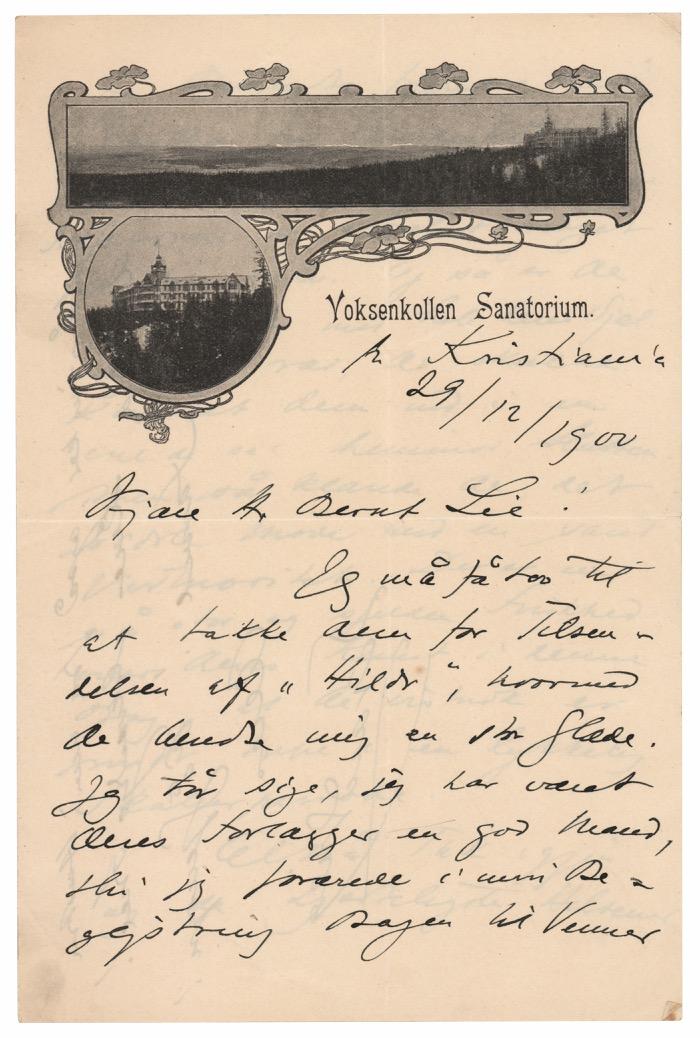 Voksenkollen Sanatorium.
pr Kristiania
29/12/1900
Kjære Hr Bernt Lie!
Jeg må få Lov til
at takke dem for Tilsen-
delsen af „Hildr“, hvormed
de beredte mig en stor Glæde.
Jeg tør sige, jeg har været
deres Forlægger en god Mand,
thi jeg forærede i min Be-
gejstring Bogen til Venner